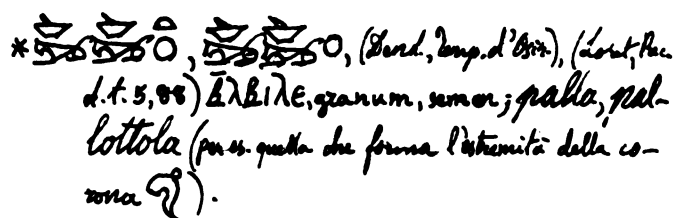 * , , (Dend., Temp. d'Osir.), (Loret, Rec.
d. t. 5, 88) ⲃ̄ⲗⲃⲓⲗⲉ, granum, semen; palla, pal-
lottola (per es. quella che forma l'estremità della co-
rona ).